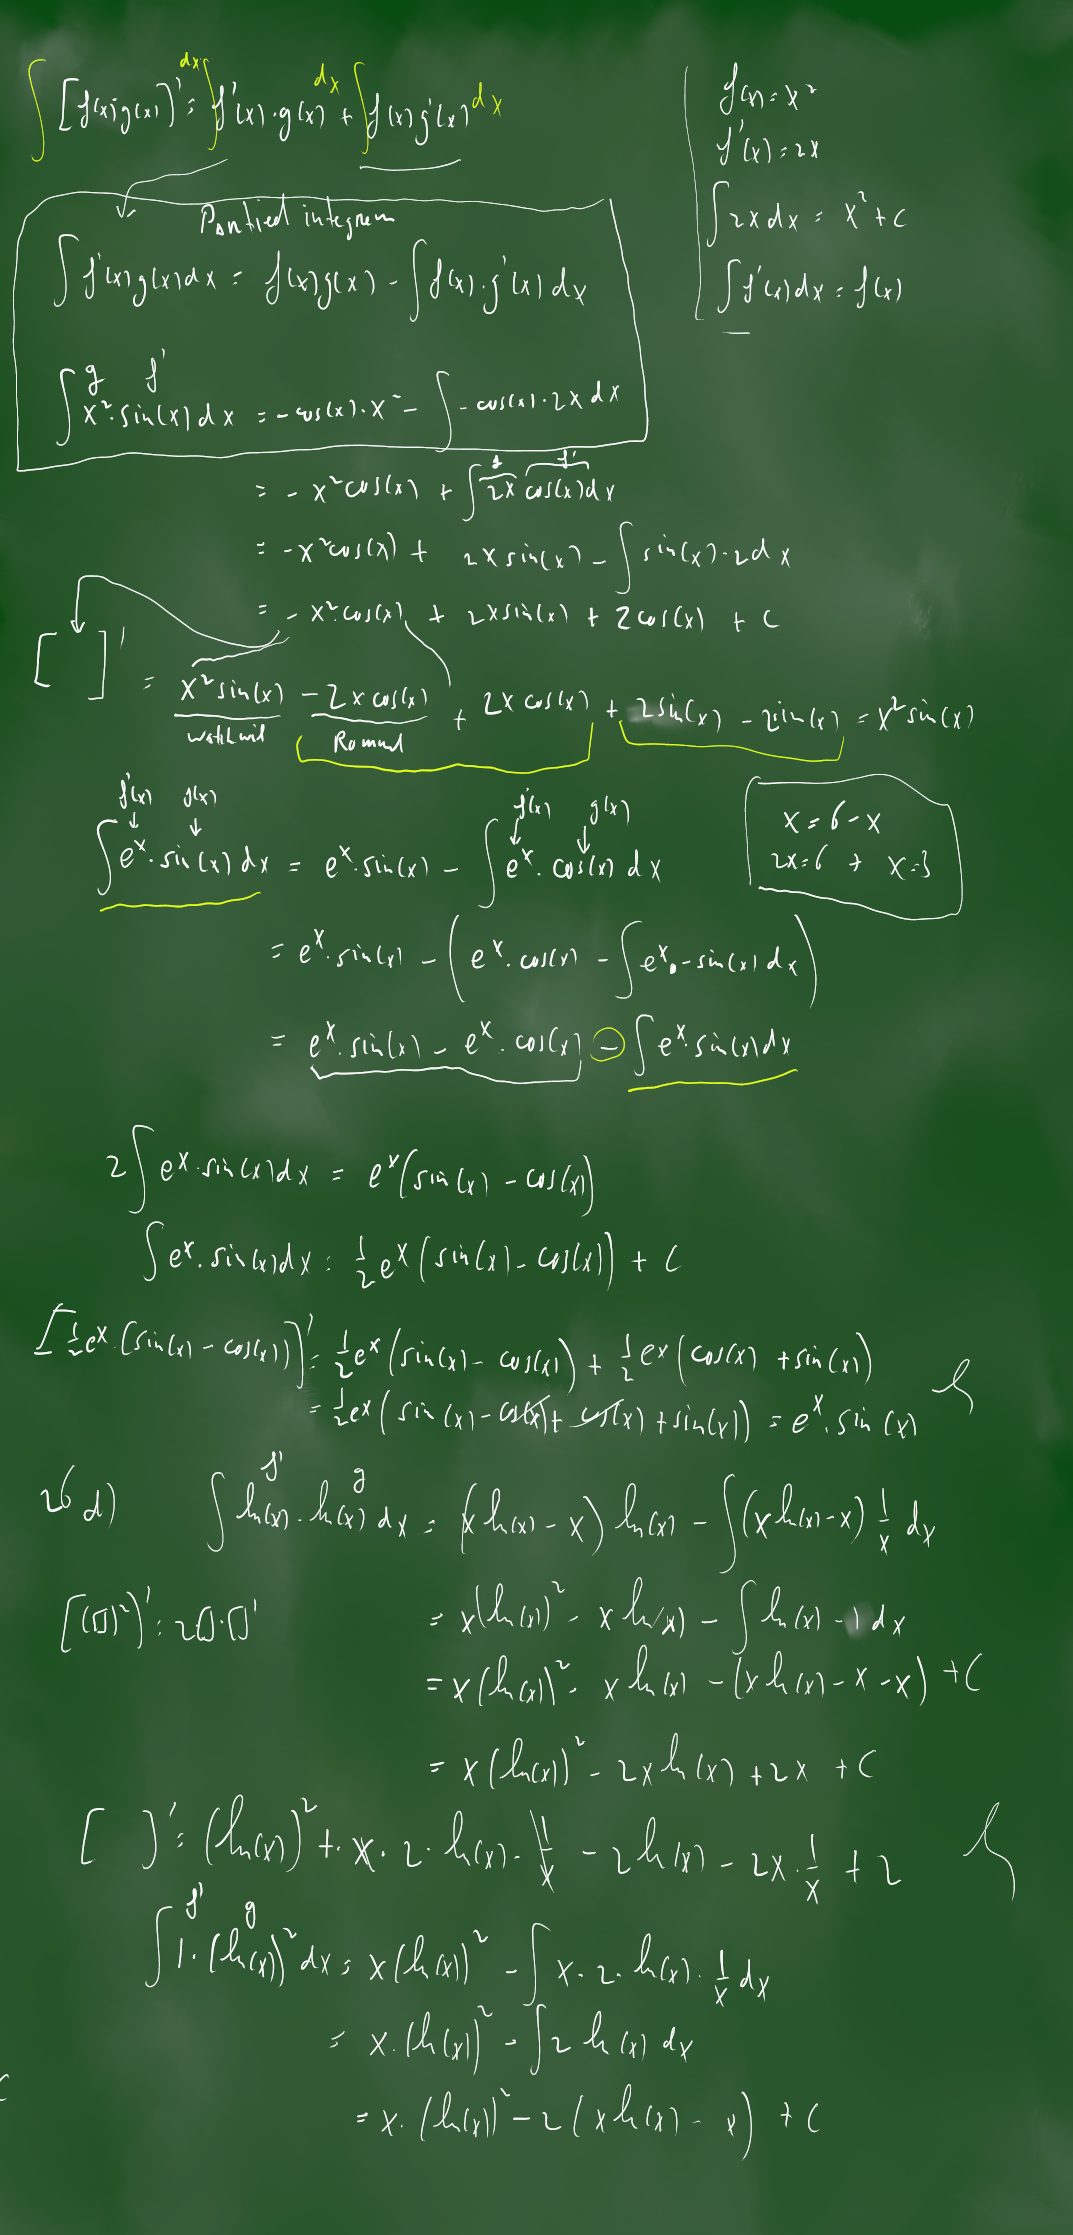 ∫ [f(x)g(x)]' dx = ∫ f'(x)·g(x) dx + ∫ f(x)g'(x) dx
f(x) = x²
f'(x) = 2x
∫ 2x dx = x² + c
∫ f'(x) dx = f(x)
∫ f'(x)g(x)dx = f(x)g(x) - ∫ f(x)·g'(x) dx
g f'
∫ x²·sin(x)dx = -cos(x)·x² - ∫ -cos(x)·2x dx
g f'
= -x²cos(x) + ∫ 2x cos(x)dx
= -x²cos(x) + 2x sin(x) - ∫ sin(x)·2dx
= -x²cos(x) + 2x sin(x) + 2cos(x) + C
[ ]' = x²sin(x) - 2x cos(x) + 2x cos(x) + 2sin(x) - 2sin(x) = x²sin(x)
f'(x) g(x) f'(x) g(x)
∫ e^x·sin(x)dx = e^x·sin(x) - ∫ e^x·cos(x) dx
x = 6 - x
2x = 6 → x = 3
= e^x·sin(x) - (e^x·cos(x) - ∫ e^x·-sin(x)dx)
= e^x·sin(x) - e^x·cos(x) - ∫ e^x·sin(x)dx
2∫ e^x·sin(x)dx = e^x(sin(x) - cos(x))
∫ e^x·sin(x)dx = ½e^x(sin(x) - cos(x)) + C
[½e^x·(sin(x) - cos(x))]' = ½e^x(sin(x) - cos(x)) + ½e^x(cos(x) + sin(x))
= ½e^x(sin(x) - cos(x) + cos(x) + sin(x)) = e^x·sin(x)
26 d)
f' g
∫ ln(x)·ln(x) dx = (x ln(x) - x) ln(x) - ∫(x ln(x) - x) 1/x dx
[(□)²]' = 2□·□'
= x(ln(x))² - x ln(x) - ∫ ln(x) - 1 dx
= x(ln(x))² - x ln(x) - (x ln(x) - x - x) + C
= x(ln(x))² - 2x ln(x) + 2x + C
[ ]' = (ln(x))² + x·2·ln(x)·1/x - 2ln(x) - 2x·1/x + 2
f' g
∫ 1·(ln(x))² dx = x(ln(x))² - ∫ x·2·ln(x)·1/x dx
= x·(ln(x))² - ∫ 2 ln(x) dx
= x·(ln(x))² - 2(x ln(x) - x) + C